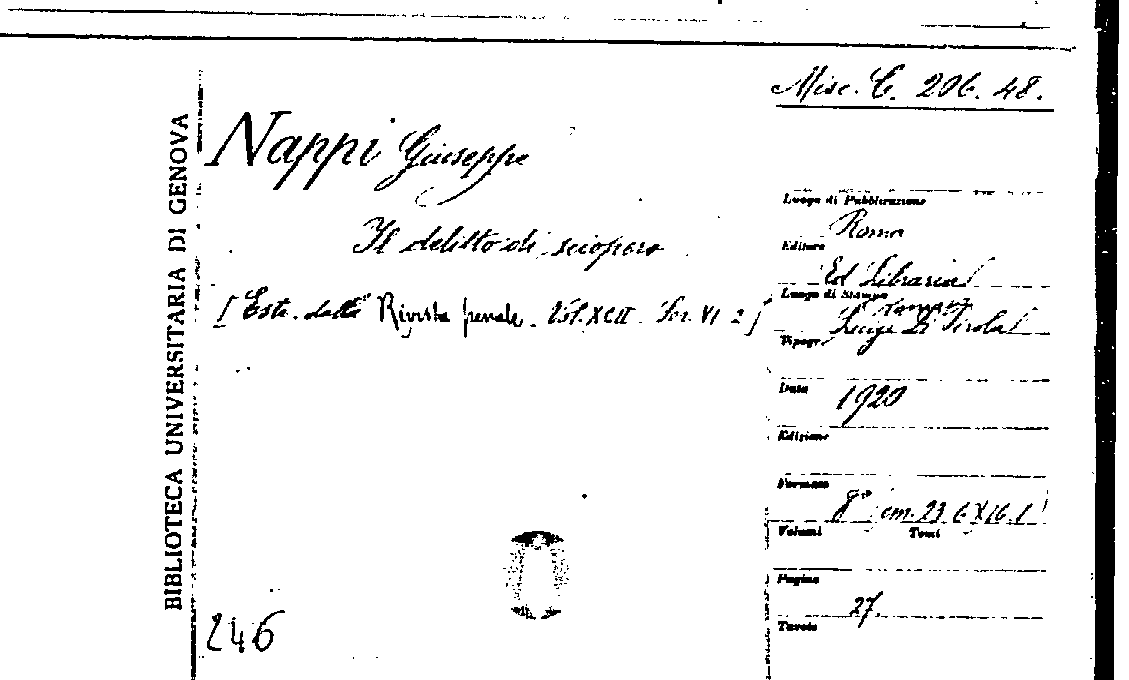 Misc. C. 206. 48.
BIBLIOTECA UNIVERSITARIA DI GENOVA
Nappi Giuseppe
Il delitto di sciopero
[Estr. dalla Rivista penale. Vol. XCII. Ser. VI 2]
246
Luogo di Pubblicazione
Roma
Editore
Ed. Libraria
Luogo di Stampa
Roma
Tipogr.
Luigi Di
Data
1920
Edizione
Formato
8° (cm. 23.6 X 16.1)
Volumi Tomi
Pagine
27.
Tavole